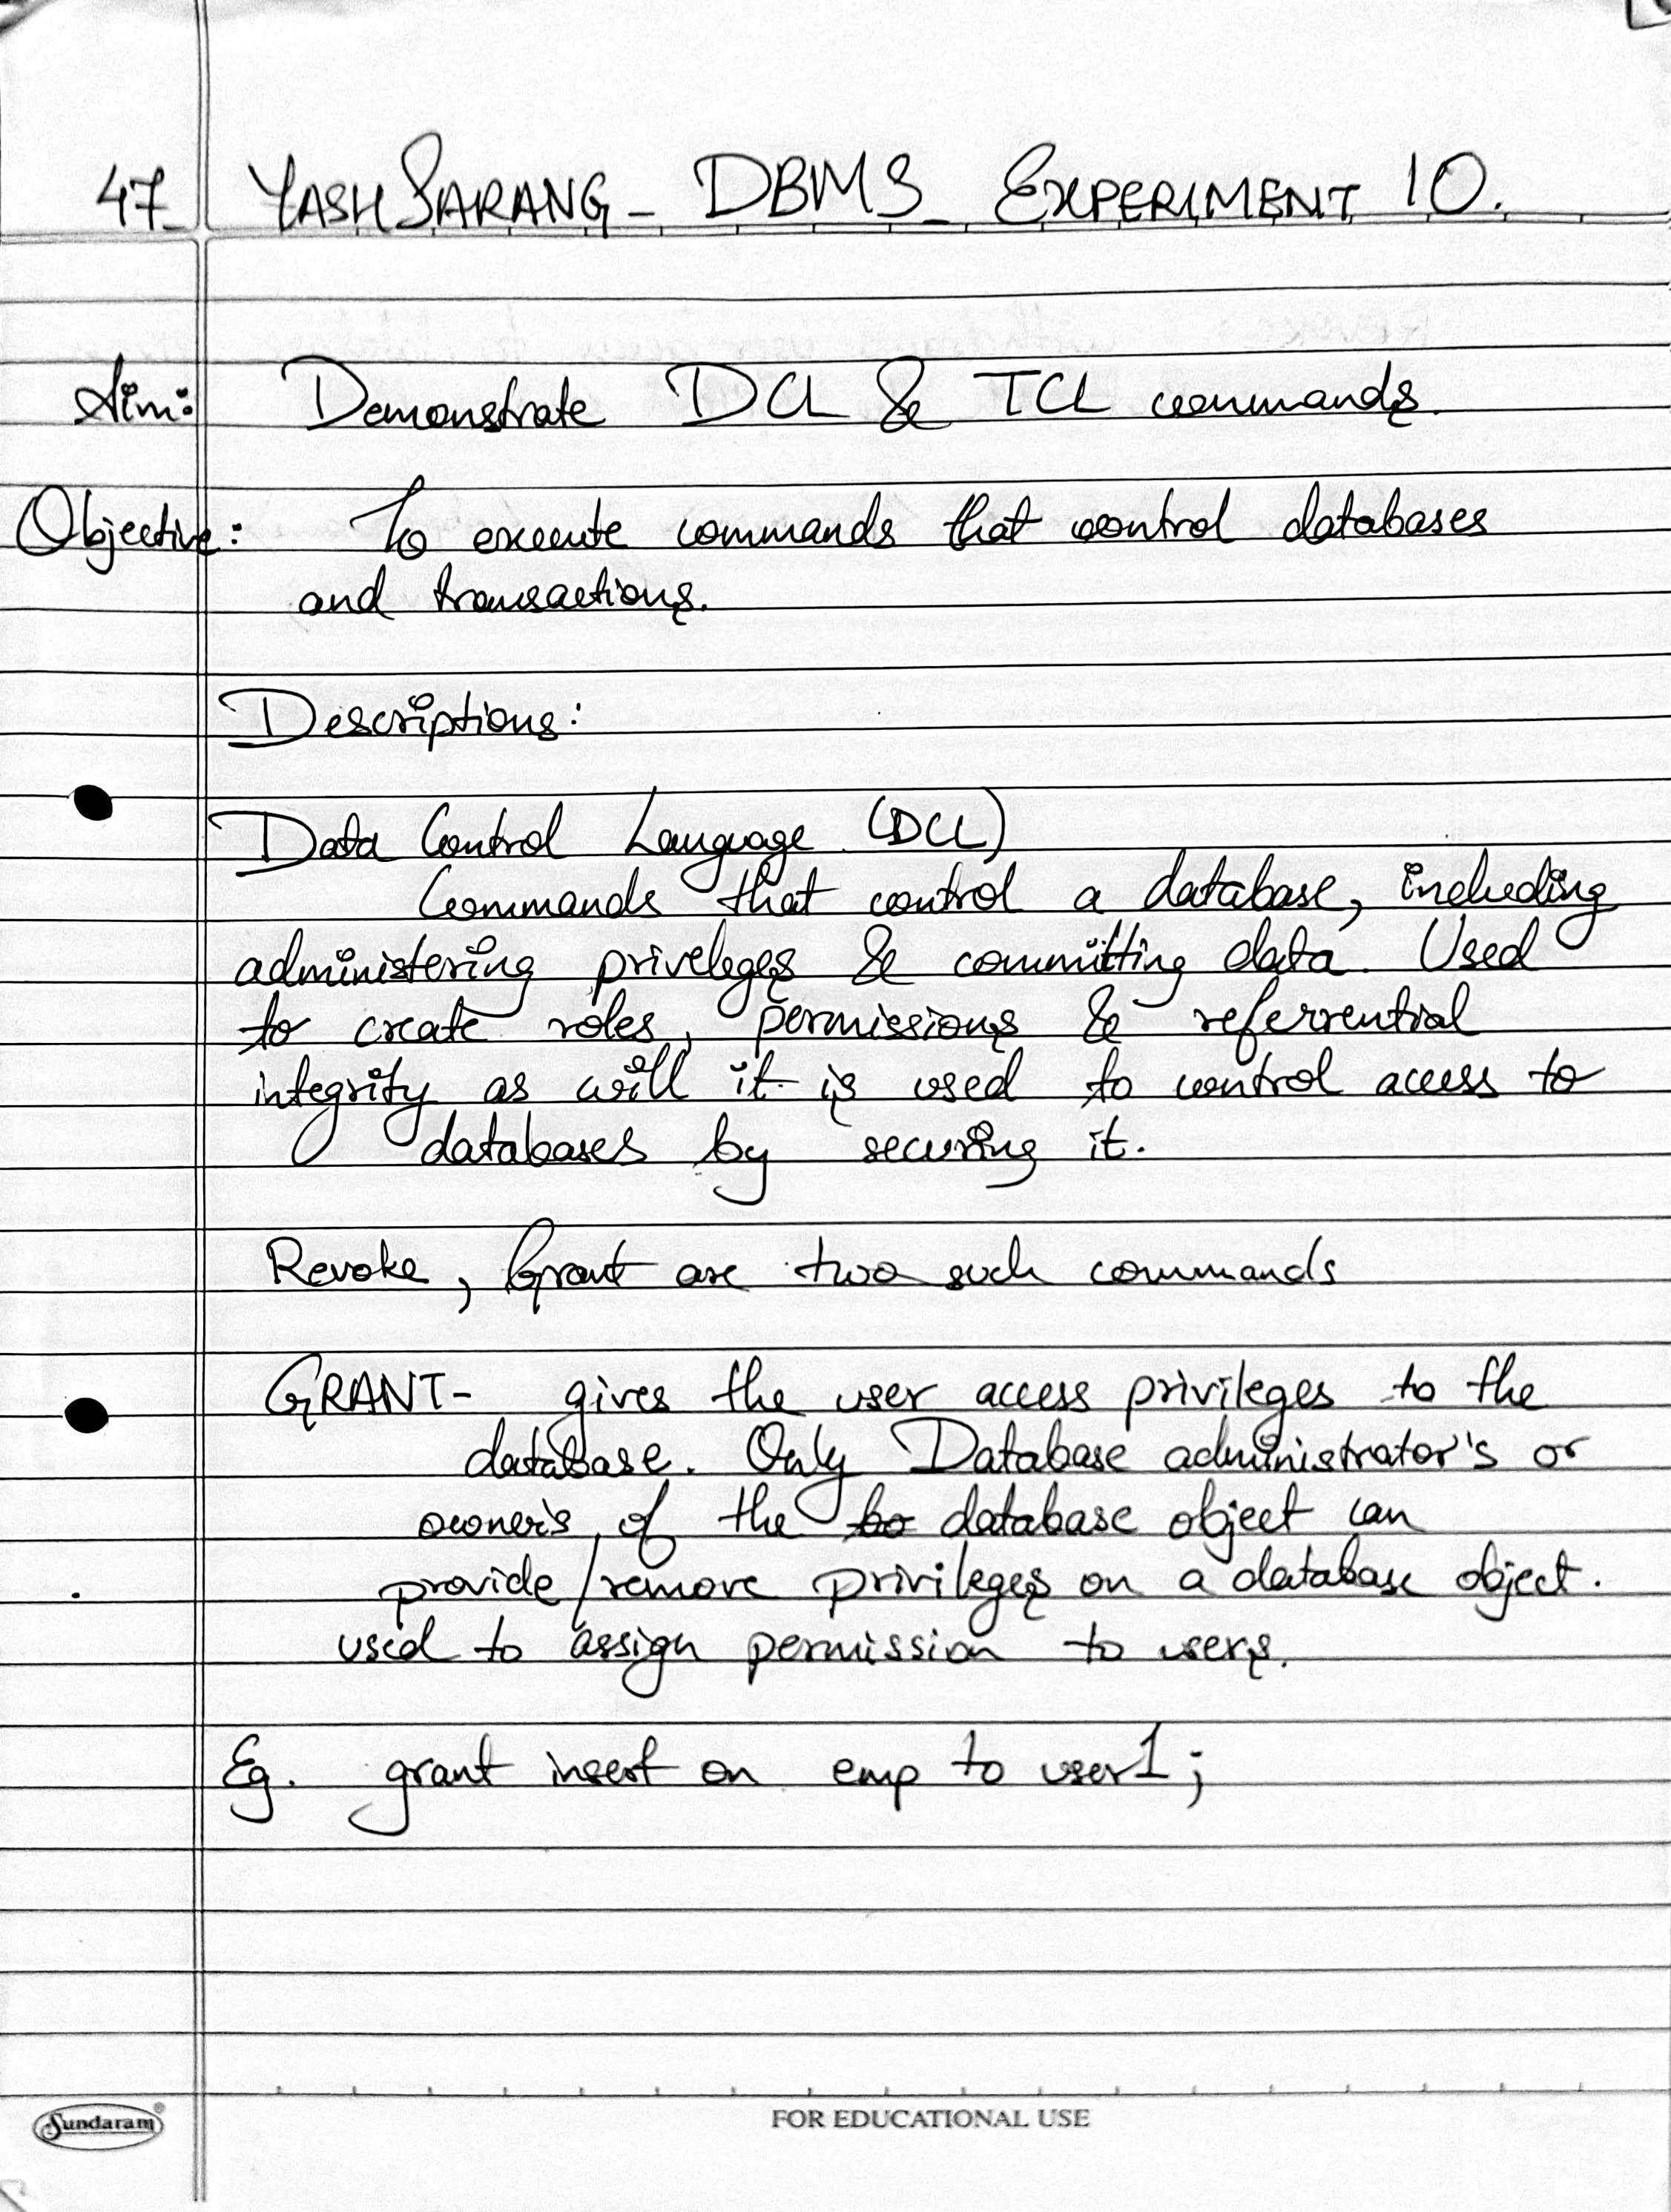 47 YASH SARANG - DBMS - EXPERIMENT 10.
Aim: Demonstrate DCL & TCL commands.
Objective: To execute commands that control databases
and transactions.
Descriptions:
Data Control Language (DCL)
Commands that control a database, including
administering priveleges & committing data. Used
to create roles, permissions & referrential
integrity as will it is used to control access to
databases by securing it.
Revoke, Grant are two such commands
GRANT- gives the user access privileges to the
database. Only Database administrator's or
owner's of the database object can
provide/remove privileges on a database object.
used to assign permission to users.
Eg. grant insert on emp to user1;
Sundaram®
FOR EDUCATIONAL USE